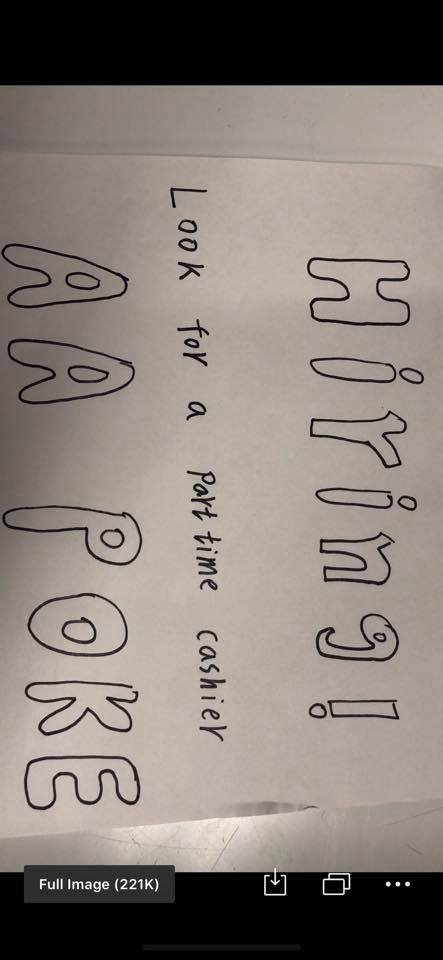 Hiring!
Look for a part time cashier
AA POKE
Full Image (221K)